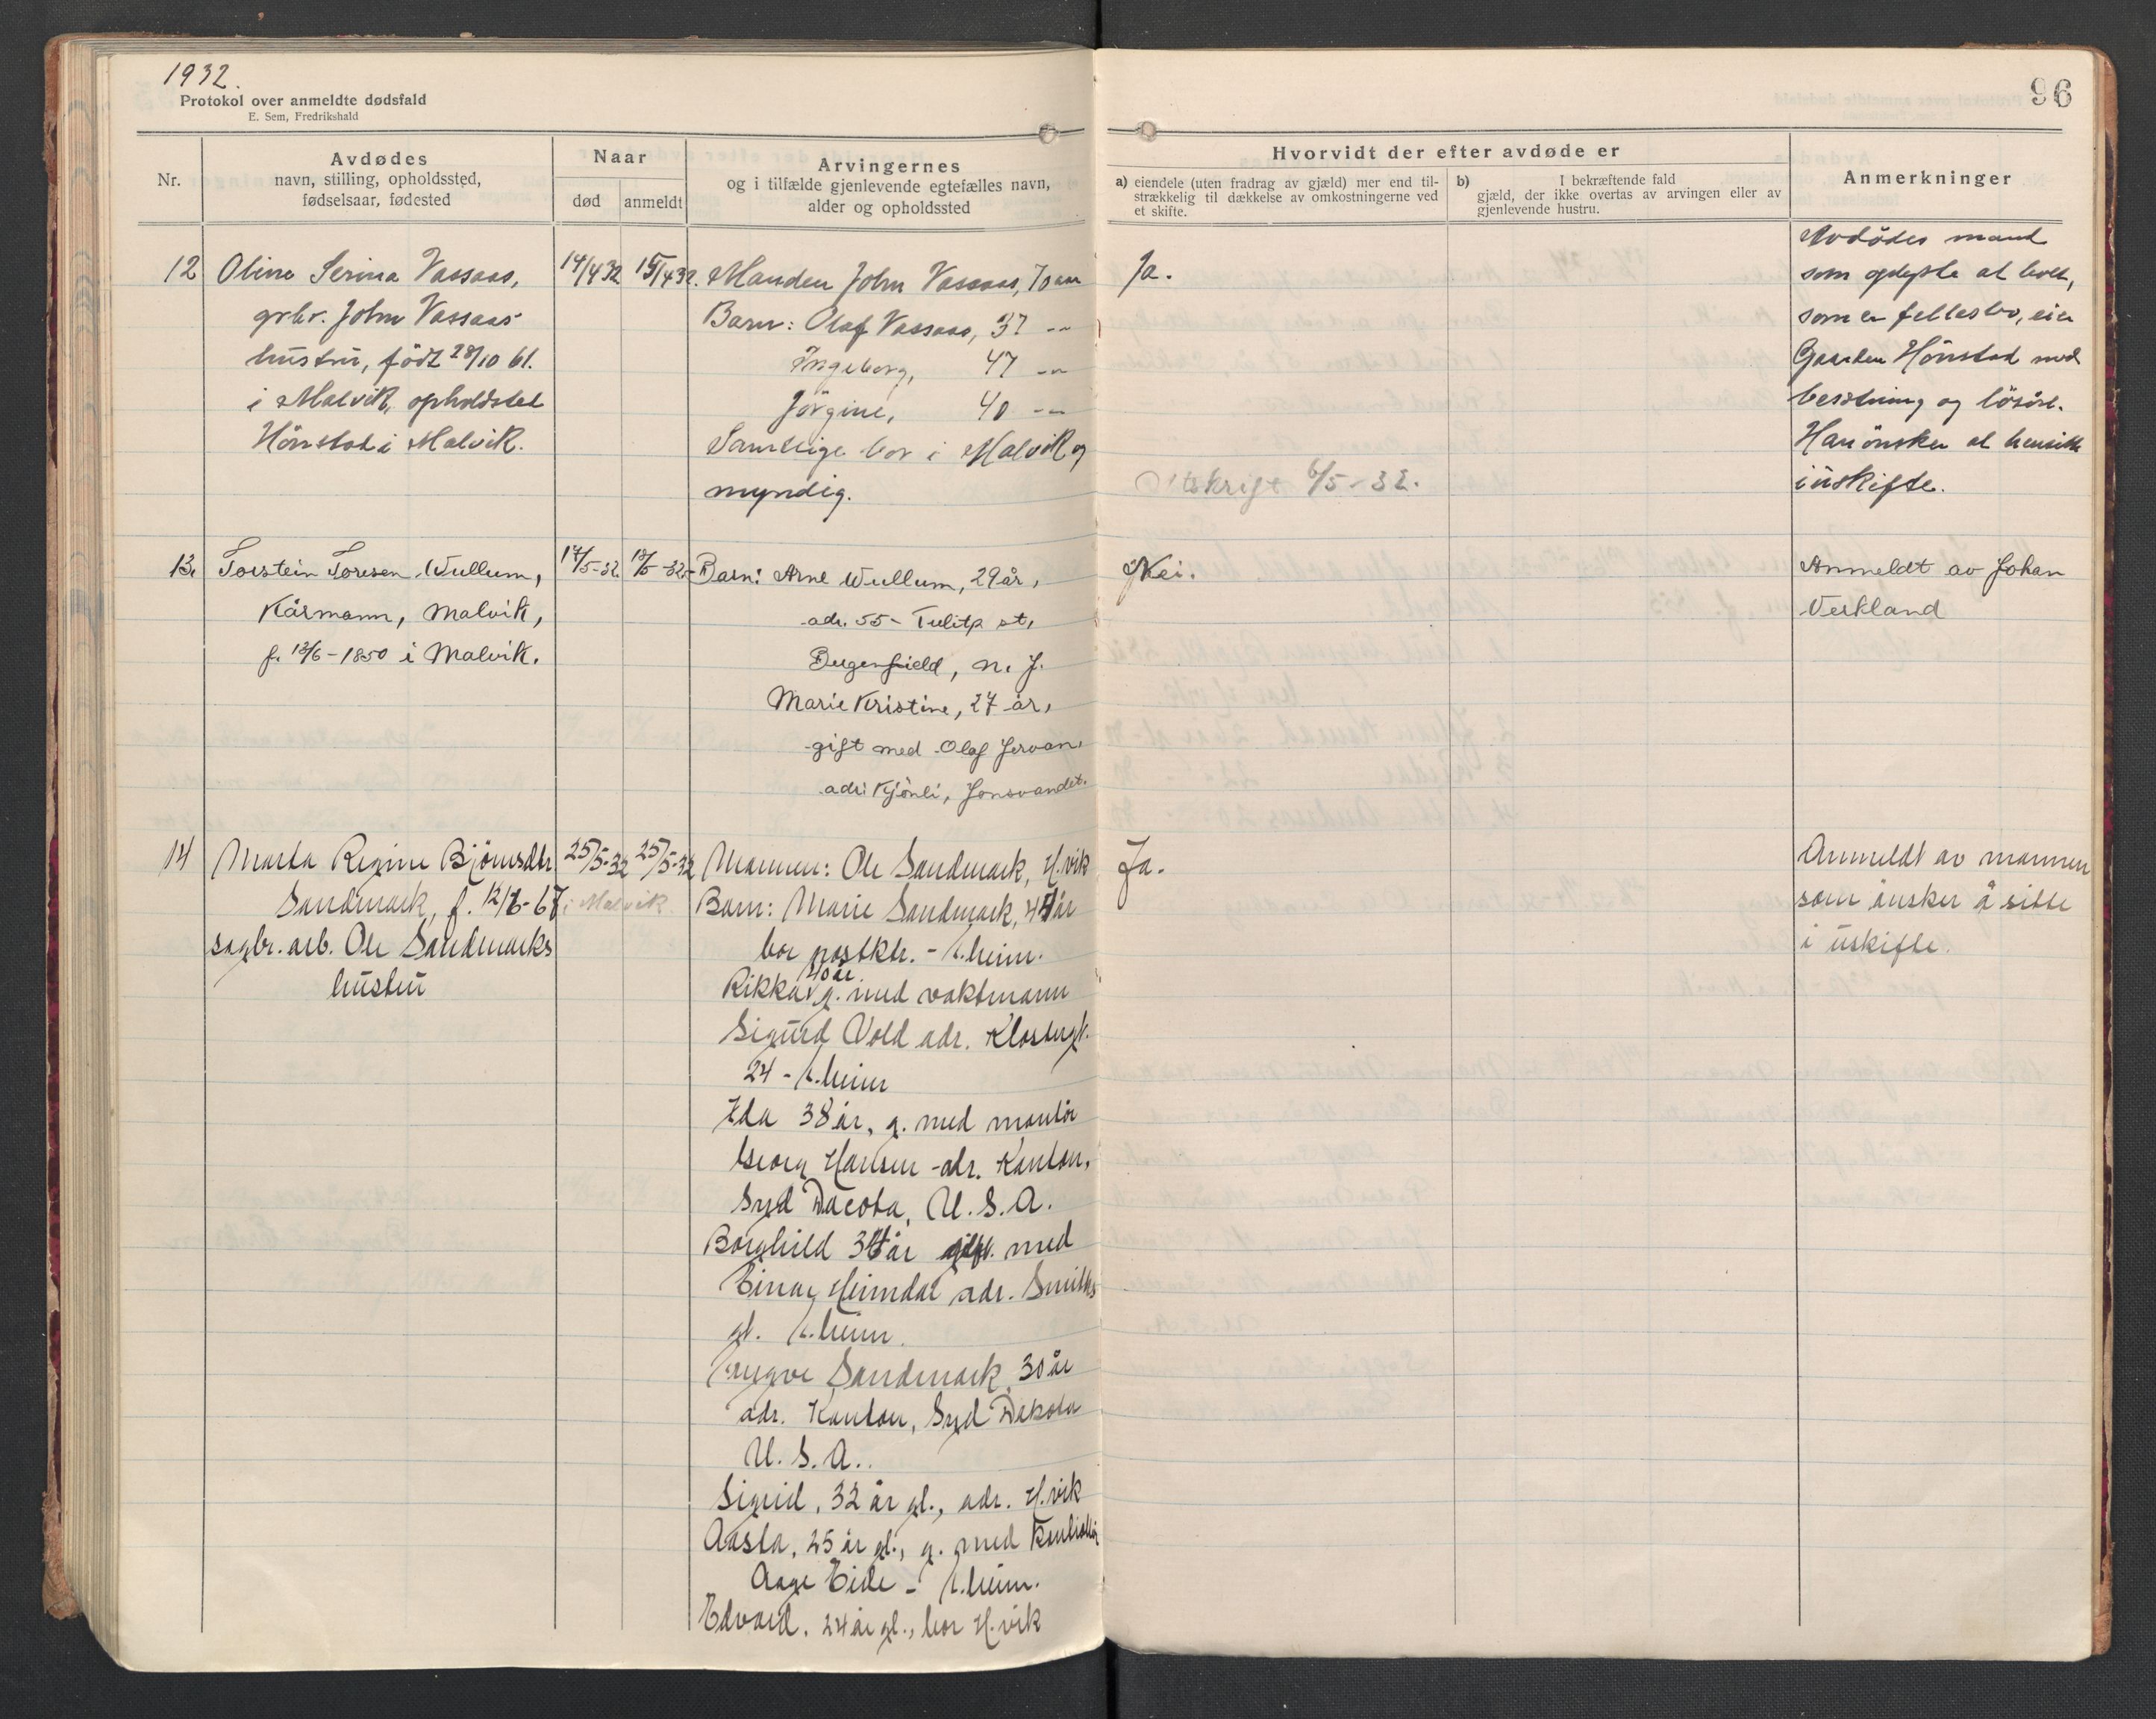 1932.
Protokol over anmeldte dødsfald
E. Sem, Fredrikshald
96
Nr.
Avdødes
navn, stilling, opholdssted,
fødselsaar, fødested
Naar
død
anmeldt
Arvingernes
og i tilfælde gjenlevende egtefælles navn,
alder og opholdssted
Hvorvidt der efter avdøde er
a) eiendele (uten fradrag av gjæld) mer end til-
strækkelig til dækkelse av omkostningerne ved
et skifte.
b) I bekræftende fald
gjæld, der ikke overtas av arvingen eller av
gjenlevende hustru.
Anmerkninger
12
Oline Serina Vassaas,
grbr. John Vassaas
hustru, født 28/10 61.
i Malvik, opholdsted
Hönstad i Malvik.
14/4 32
15/4 32.
Manden John Vassaas, 70 aar
Barn: Olaf Vassaas, 37 -"-
Ingeborg, 47 -"-
Jörgine, 40 -"-
Samtlige bor i Malvik og
myndig.
Ja.
Utskrift 6/5-32.
Avdödes mand
som oplyste at boet,
som er fellesbo, eier
Gaarden Hönstad med
besetning og lösöre.
Han önsker at hensitte
i uskifte.
13.
Torstein Toresen Wullum,
Kårmann, Malvik,
f. 13/6-1850 i Malvik.
17/5-32
18/5-32
Barn: Arne Wullum, 29 år,
adr. 55- Tulitp st,
Bergenfield, N. J.
Marie Kristine, 27 år,
gift med Olaf Jervan,
adr: Kjönli, Jonsvandet.
Nei.
Anmeldt av Johan
Verkland
14
Marta Regine Björnsdtr
Sandmark, f. 12/8-67 i Malvik
sagbr. arb. Ole Sandmarks
hustru
25/5-32
25/5-32
Mannen: Ole Sandmark, H.vik
Barn: Marie Sandmark, 44 år
bor postktr. - T.heim.
40 år
Rikka g. med vaktmann
Sigurd Vold adr. Klostergt.
24 - T.heim
Ida 38 år, g. med montör
Georg Hansen adr. Kanton,
Syd Dacota, U.S.A.
Borghild 34 år gift. med
Einar Heimdal adr. Smiths
gt. T.heim.
Trygve Sandmark, 30 år
adr. Kanton, Syd Dakota
U.S.A..
Sigrid, 32 år gl., adr. H.vik
Aasta, 25 år gl., g. med
Aage Eide - T.heim.
Edvard. 24 år gl., bor H.vik
Ja.
Anmeldt av mannen
som önsker å sitte
i uskifte.